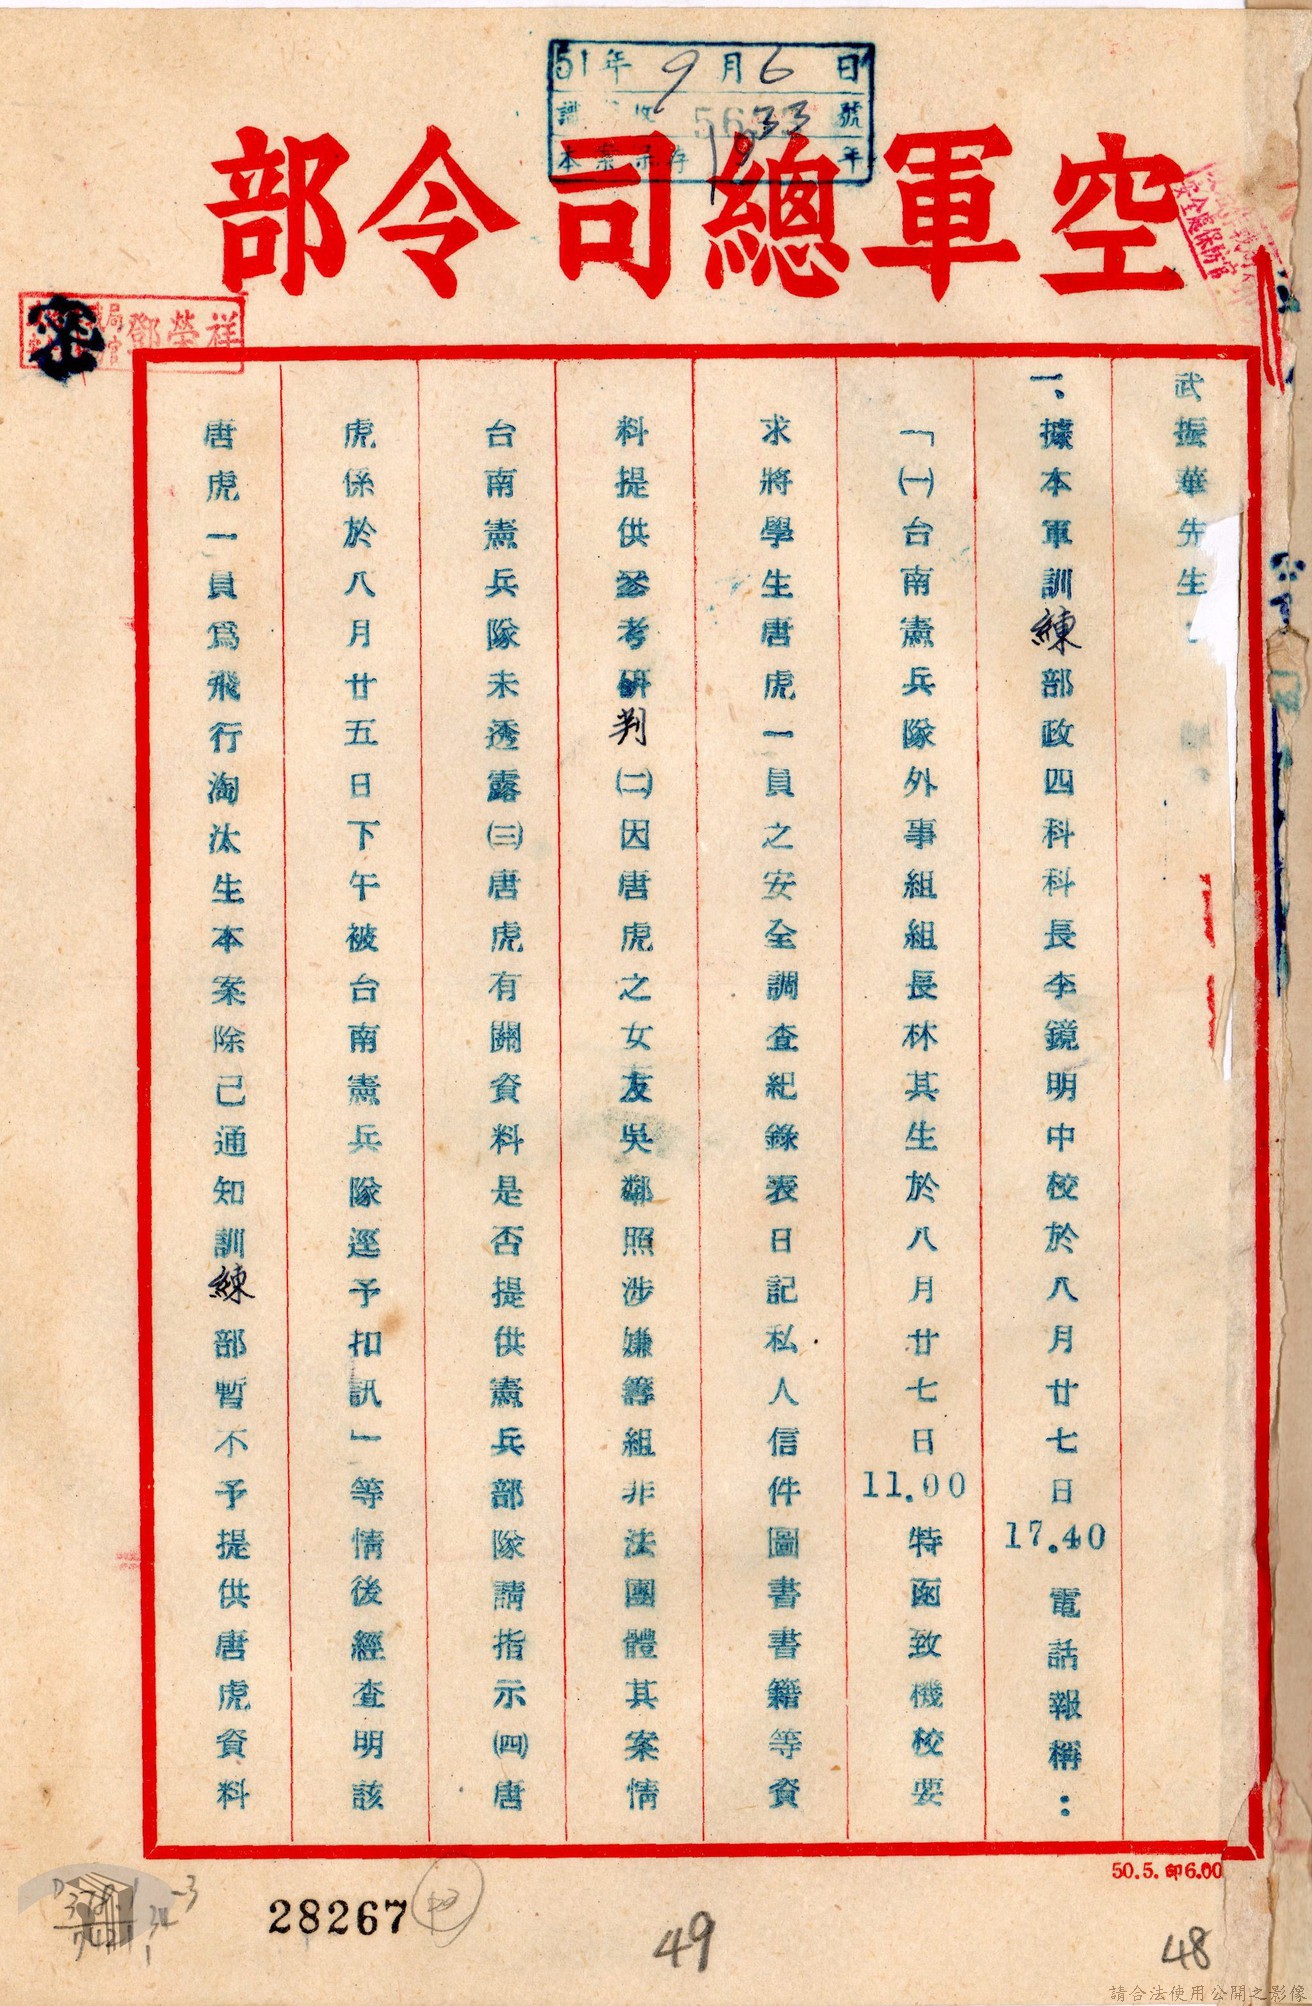 51年9月6日
5633號
本案 存19年
空軍總司令部
密
鄧榮祥
安全處保防官
武振華先生:
一、據本軍訓練部政四科科長李鏡明中校於八月廿七日17.40電話報稱:
「㈠台南憲兵隊外事組組長林其生於八月廿七日11.00特函致機校要
求將學生唐虎一員之安全調查紀錄表日記私人信件圖書書籍等資
料提供參考研判㈡因唐虎之女友吳鄰照涉嫌籌組非法團體其案情
台南憲兵隊未透露㈢唐虎有關資料是否提供憲兵部隊請指示㈣唐
虎係於八月廿五日下午被台南憲兵隊逕予扣訊」等情後經查明該
唐虎一員為飛行淘汰生本案除已通知訓練部暫不予提供唐虎資料
50.5.印6.00
28267
49
48
請合法使用公開之影像